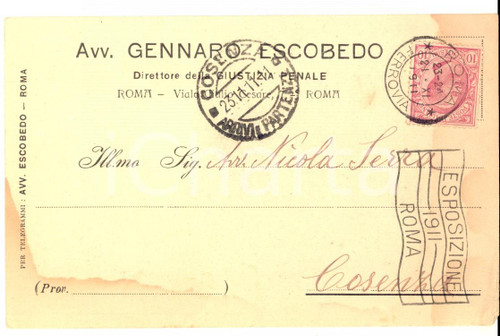 Avv. GENNARO ESCOBEDO
Direttore della GIUSTIZIA PENALE
ROMA - Viale Giulio Cesare, ROMA
COSENZA
23.11.11
ARRIVI E PARTENZE
ROMA
FERROVIA
1911
10
Illmo Sig. Avv. Nicola Serra
ESPOSIZIONE
1911
ROMA
Cosenza
(Prov.
PER TELEGRAMMI: AVV. ESCOBEDO - ROMA